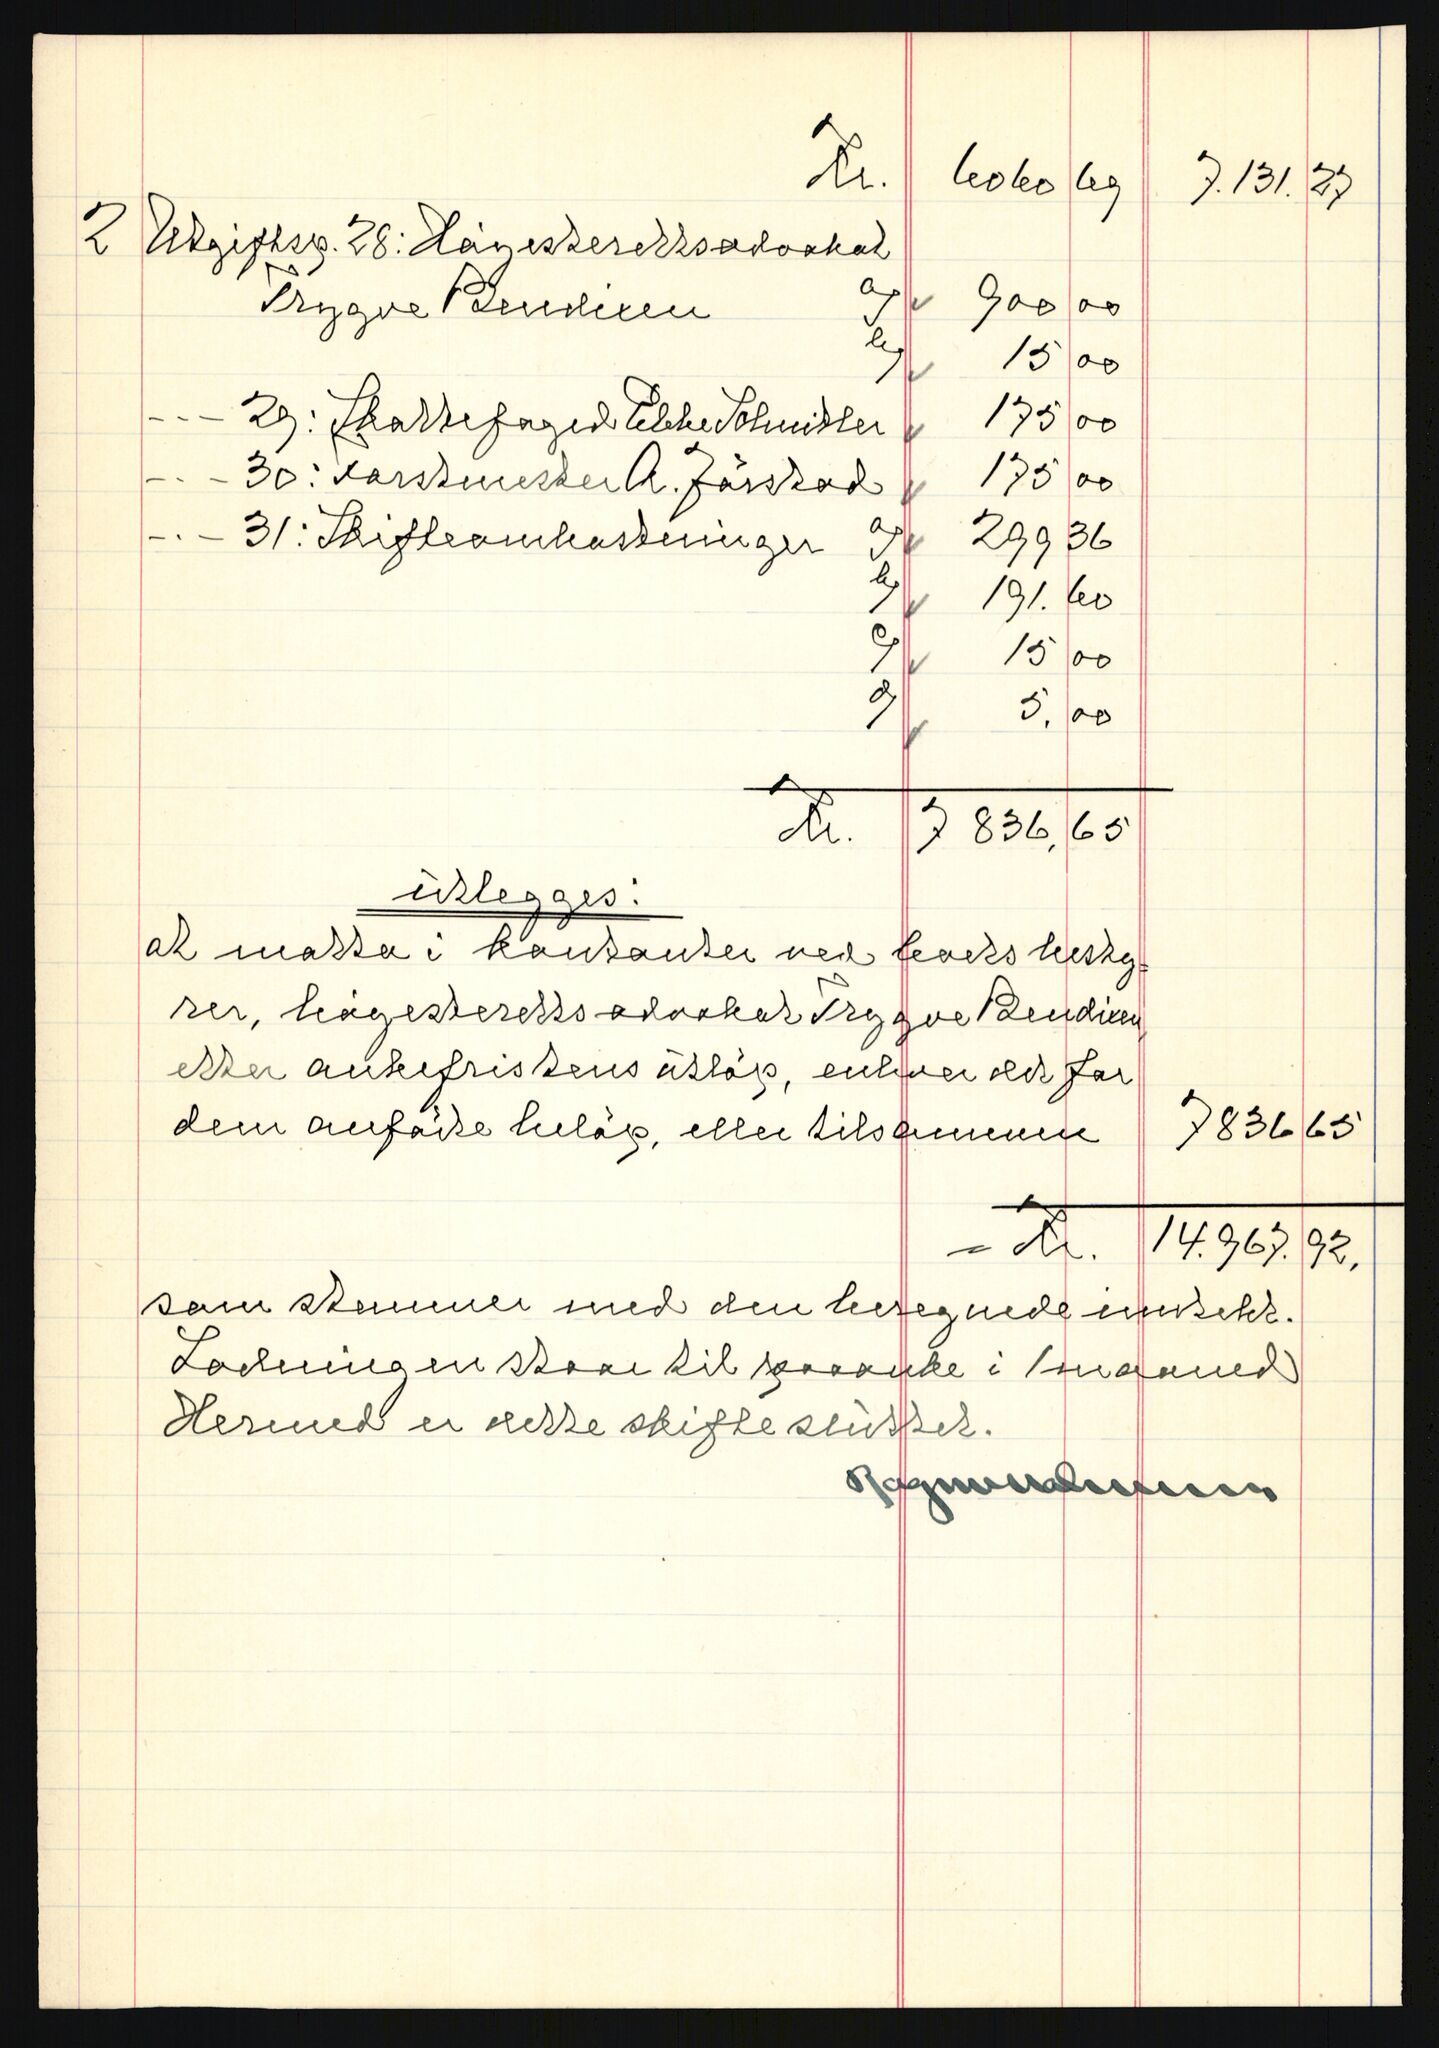 Kr. 6060 69 7.131.27
2 Utgiftsp. 28: Høyesterettsadvokat
Trygve Bendixen a/ 900 00
b/ 15 00
- - - 29: Skattefoged Ebbe Schnitler 175 00
- . - 30: Forstmester A. Jørstad 175 00
- . - 31: Skifteomkostninger a/ 299 36
b/ 191.60
c/ 15 00
d/ 5,00
Kr. 7 836,65
utlegges:
at motta i kontanter ved boets besty-
rer, høyesterettsadvokat Trygve Bendixen
etter ankefristens utløp, enhver det for
dem anførte beløp, eller tilsammen 7836 65
= Kr. 14.967.92.
som stemmer med den beregnede inntekt.
Lodningen staar til paaanke i 1 maaned
Hermed er dette skifte sluttet.